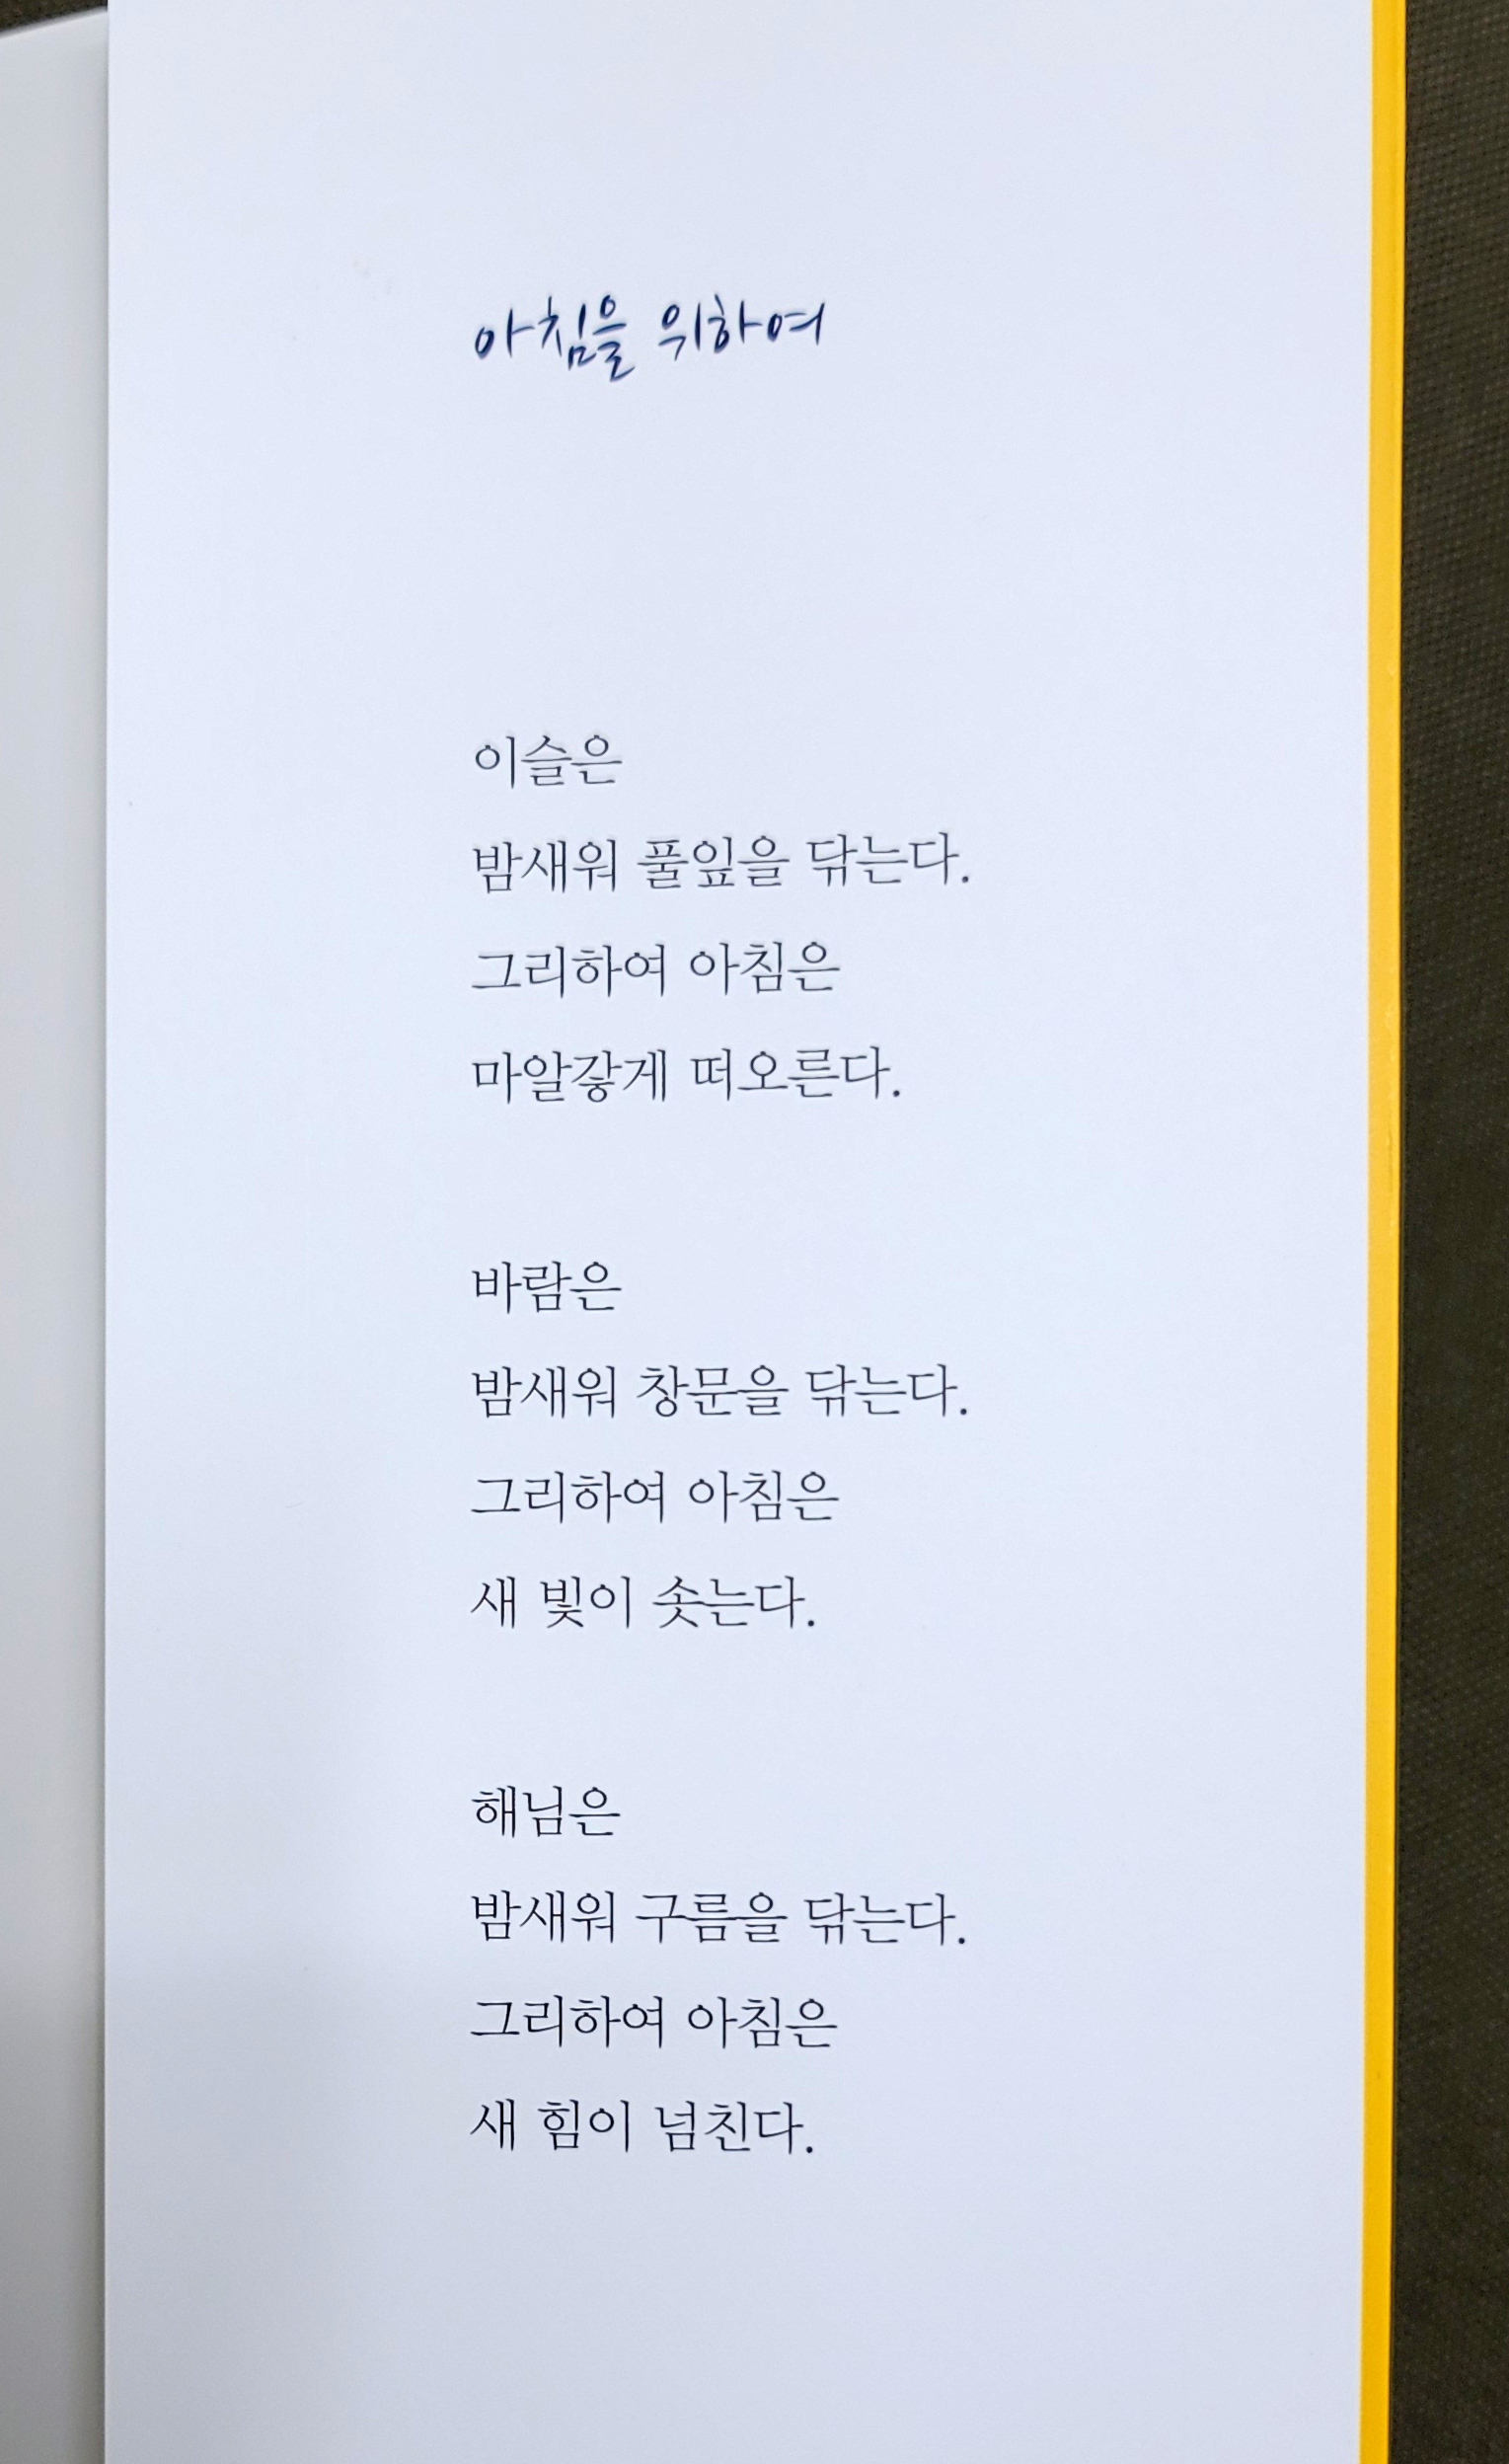 아침을 위하여
이슬은
밤새워 풀잎을 닦는다.
그리하여 아침은
마알갛게 떠오른다.
바람은
밤새워 창문을 닦는다.
그리하여 아침은
새 빛이 솟는다.
해님은
밤새워 구름을 닦는다.
그리하여 아침은
새 힘이 넘친다.